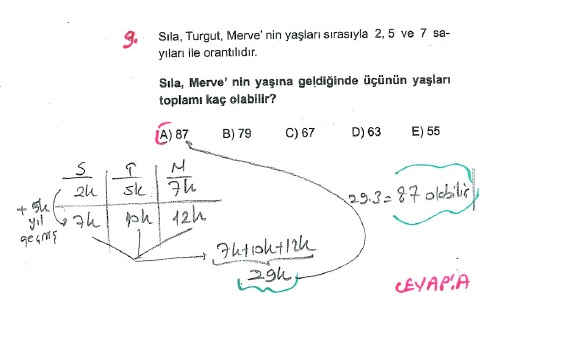 9. Sıla, Turgut, Merve' nin yaşları sırasıyla 2, 5 ve 7 sa-
yıları ile orantılıdır.
Sıla, Merve' nin yaşına geldiğinde üçünün yaşları
toplamı kaç olabilir?
A) 87 B) 79 C) 67 D) 63 E) 55
S T M
2k 5k 7k
+5k yıl geçmiş
7k 10k 12k
7k+10k+12k
29k
29.3=87 olabilir
CEVAP:A